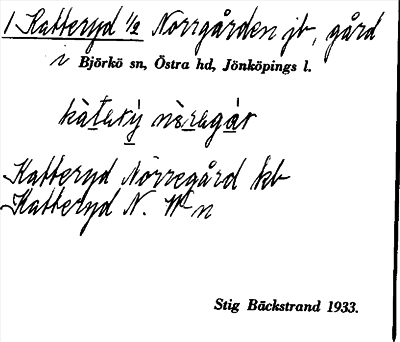 1 Katteryd 1/2 Norrgården jb, gård
i Björkö sn, Östra hd, Jönköpings l.
kàtarý nòragàr
Katteryd Norregård kb
Katteryd N.
Stig Bäckstrand 1933.